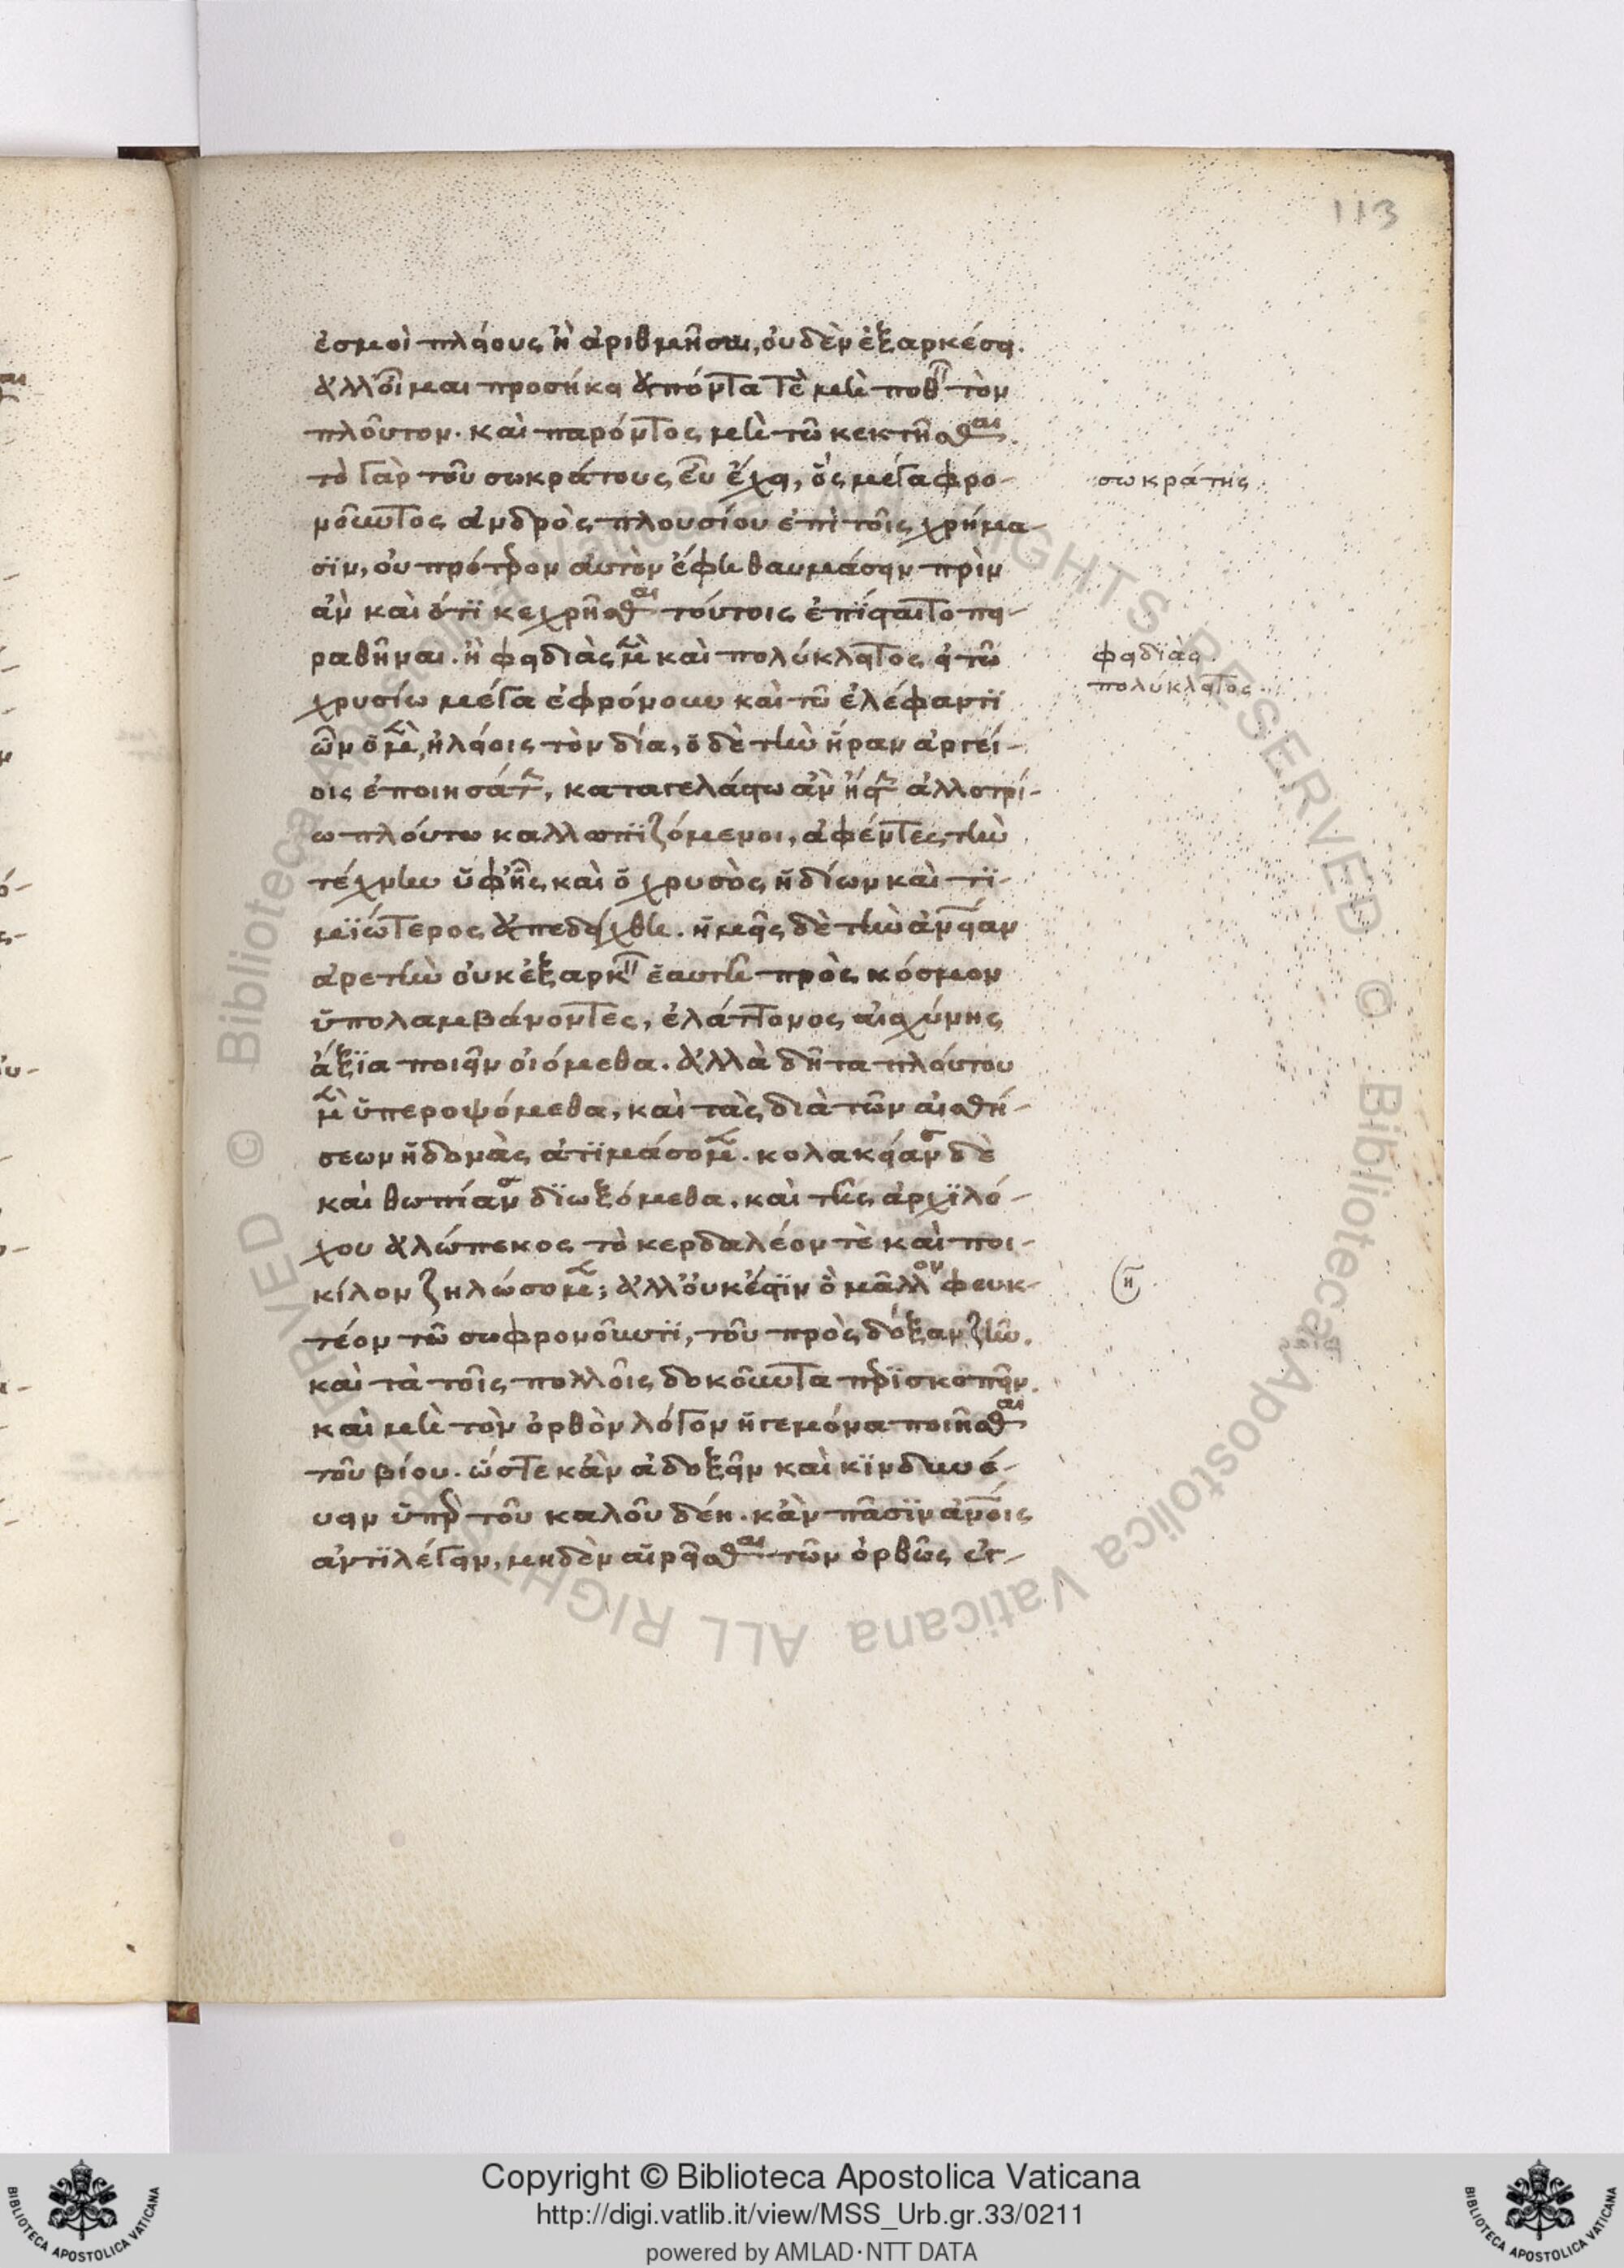 113
ἐσμοὶ πλείους ἢ ἀριθμῆσαι, οὐδὲν ἐξαρκέσει.
ἀλλ' οἶμαι προσήκει ἀπόντα τὲ μὴ ποθεῖν τὸν
πλοῦτον. καὶ παρόντος μὴ τῶ κεκτῆσθαι.
τὸ γὰρ τοῦ σωκράτους εὖ ἔχει, ὃς μέγα φρο-
νοῦντος ἀνδρὸς πλουσίου ἐπὶ τοῖς χρήμα-
σϊν, οὐ πρότερον αὐτὸν ἔφη θαυμάσειν πρὶν
ἂν καὶ ὅτϊ κεχρῆσθαι τούτοις ἐπίσταιτο πει-
ραθῆναι. ἢ φειδιὰς μὲν καὶ πολύκλειτος εἰ τῶ
χρυσίω μέγα ἐφρόνουν καὶ τῶ ἐλέφαντϊ
ὧν ὁ μὲν ἠλείοις τὸν δία, ὁ δὲ τὴν ἥραν ἀργεί-
οις ἐποιησάτην, καταγελάστω ἂν ἤστην ἀλλοτρί-
ω πλούτω καλλωπϊζόμενοι, ἀφέντες τὴν
τέχνην ὑφ' ἧς καὶ ὁ χρυσὸς ἡδίων καὶ τϊ-
μϊώτερος ἀπεδείχθη. ἡμεῖς δὲ τὴν ἀνθρωπείαν
ἀρετὴν οὐκ ἐξαρκεῖν ἑαυτῆ πρὸς κόσμον
ὑπολαμβάνοντες, ἐλάττονος αἰσχύνης
ἄξϊα ποιεῖν οἰόμεθα. ἀλλὰ δῆτα πλούτου
μὲν ὑπεροψόμεθα, καὶ τὰς διὰ τῶν αἰσθή-
σεων ἡδονὰς ἀτϊμάσομεν. κολακείαν δὲ
καὶ θωπίαν δϊωξόμεθα. καὶ τῆς ἀρχϊλό-
χου ἀλώπεκος τὸ κερδαλέον τὲ καὶ ποι-
κίλον ζηλώσομεν; ἀλλ' οὐκ ἔστϊν ὃ μᾶλλον φευκ-
τέον τῶ σωφρονοῦντϊ, τοῦ πρὸς δόξαν ζῆν.
καὶ τὰ τοῖς πολλοῖς δοκοῦντα περϊσκοπεῖν.
καὶ μὴ τὸν ὀρθὸν λόγον ἡγεμόνα ποιεῖσθαι
τοῦ βίου. ὥστε κἂν ἀδοξεῖν καὶ κϊνδυνε-
ύειν ὑπὲρ τοῦ καλοῦ δέη. κἂν πᾶσϊν ἀνθρώποις
ἀντϊλέγειν, μηδὲν αἱρεῖσθαι τῶν ὀρθῶς ἐγ-
σωκράτης
φειδϊὰς
πολύκλειτος
Copyright © Biblioteca Apostolica Vaticana
http://digi.vatlib.it/view/MSS_Urb.gr.33/0211
powered by AMLAD·NTT DATA